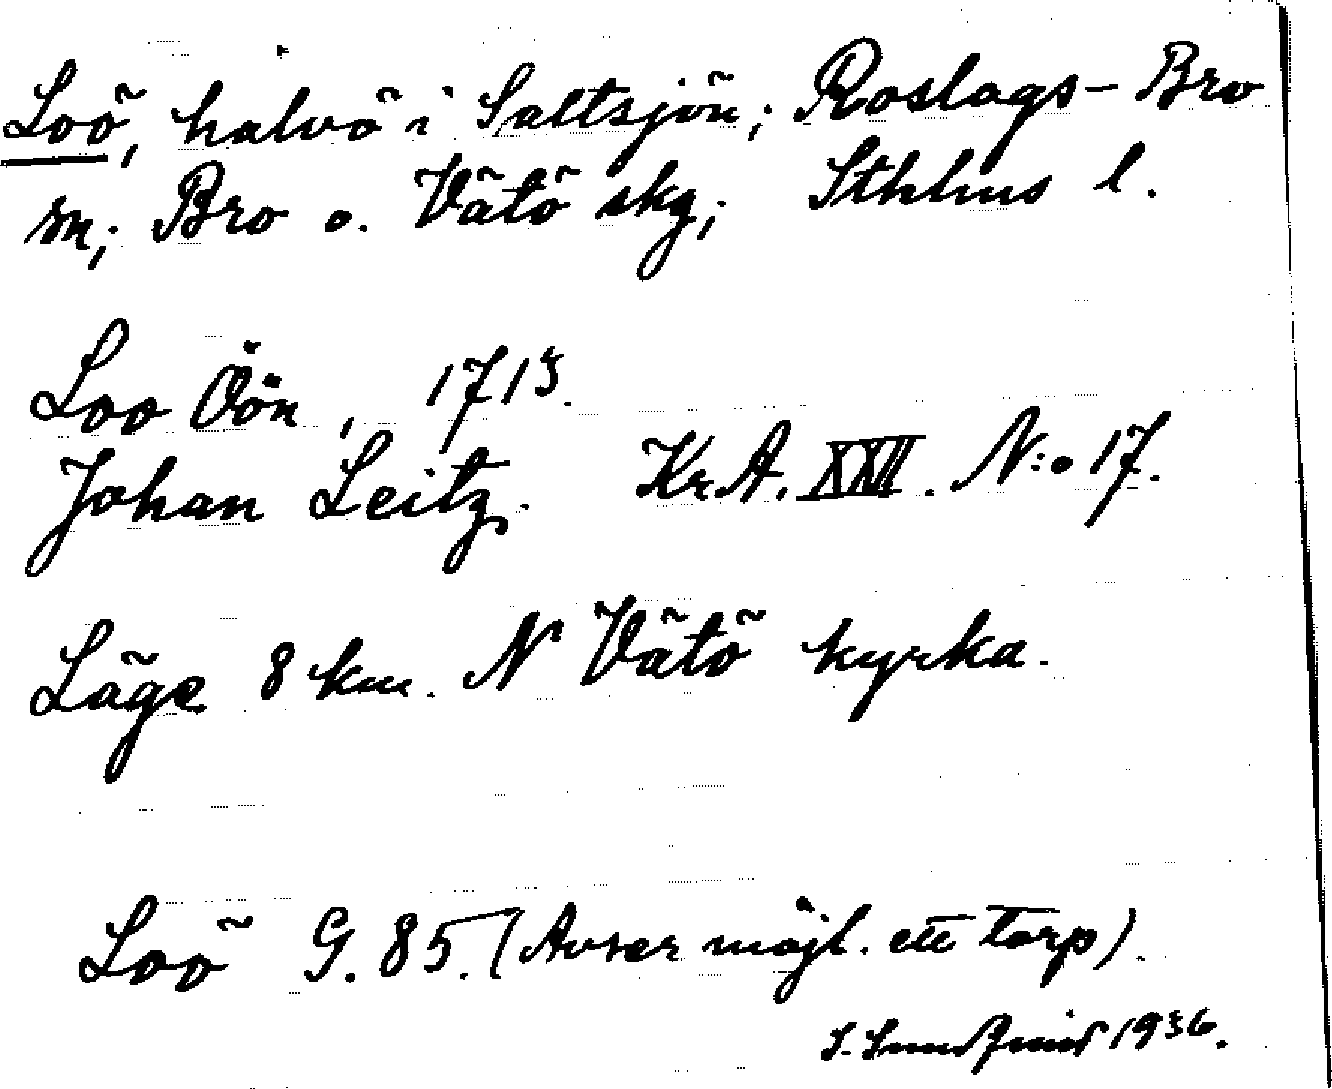 Loö, halvö i Saltsjön; Roslags-Bro
sn; Bro o. Vätö skg; Sthlms l.
Loo Öön, 1713.
Johan Leitz. Kr.A. XXVI. N:o 17.
Läge 8 km. N Vätö kyrka.
Loö G. 85. (Avser möjl. ett torp).
1936.